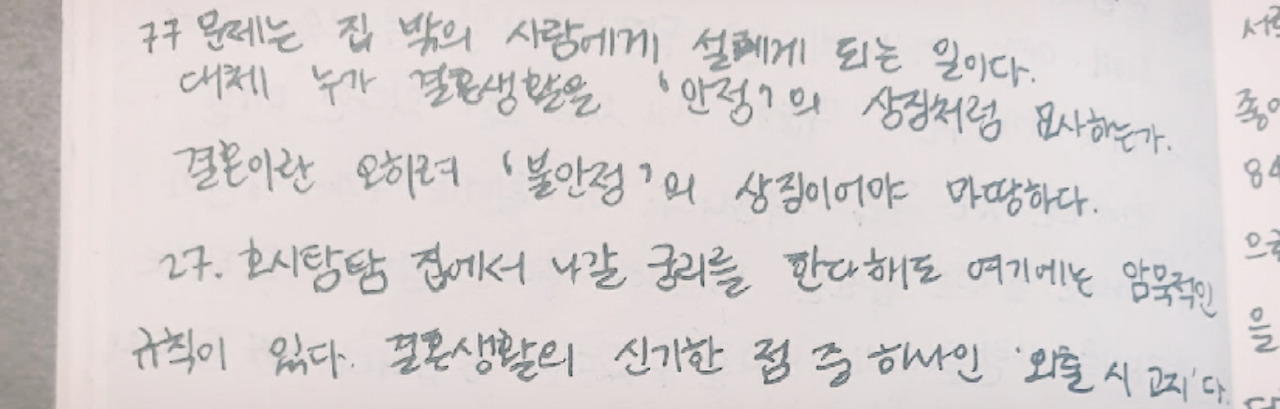 77 문제는 집 밖의 사람에게 설레게 되는 일이다.
대체 누가 결혼생활을 '안정'의 상징처럼 묘사하는가.
결혼이란 오히려 '불안정'의 상징이어야 마땅하다.
27. 호시탐탐 집에서 나갈 궁리를 한다해도 여기에는 암묵적인
규칙이 있다. 결혼생활의 신기한 점 중 하나인 '외출 시 고지'다.
좋아
84
으로
을